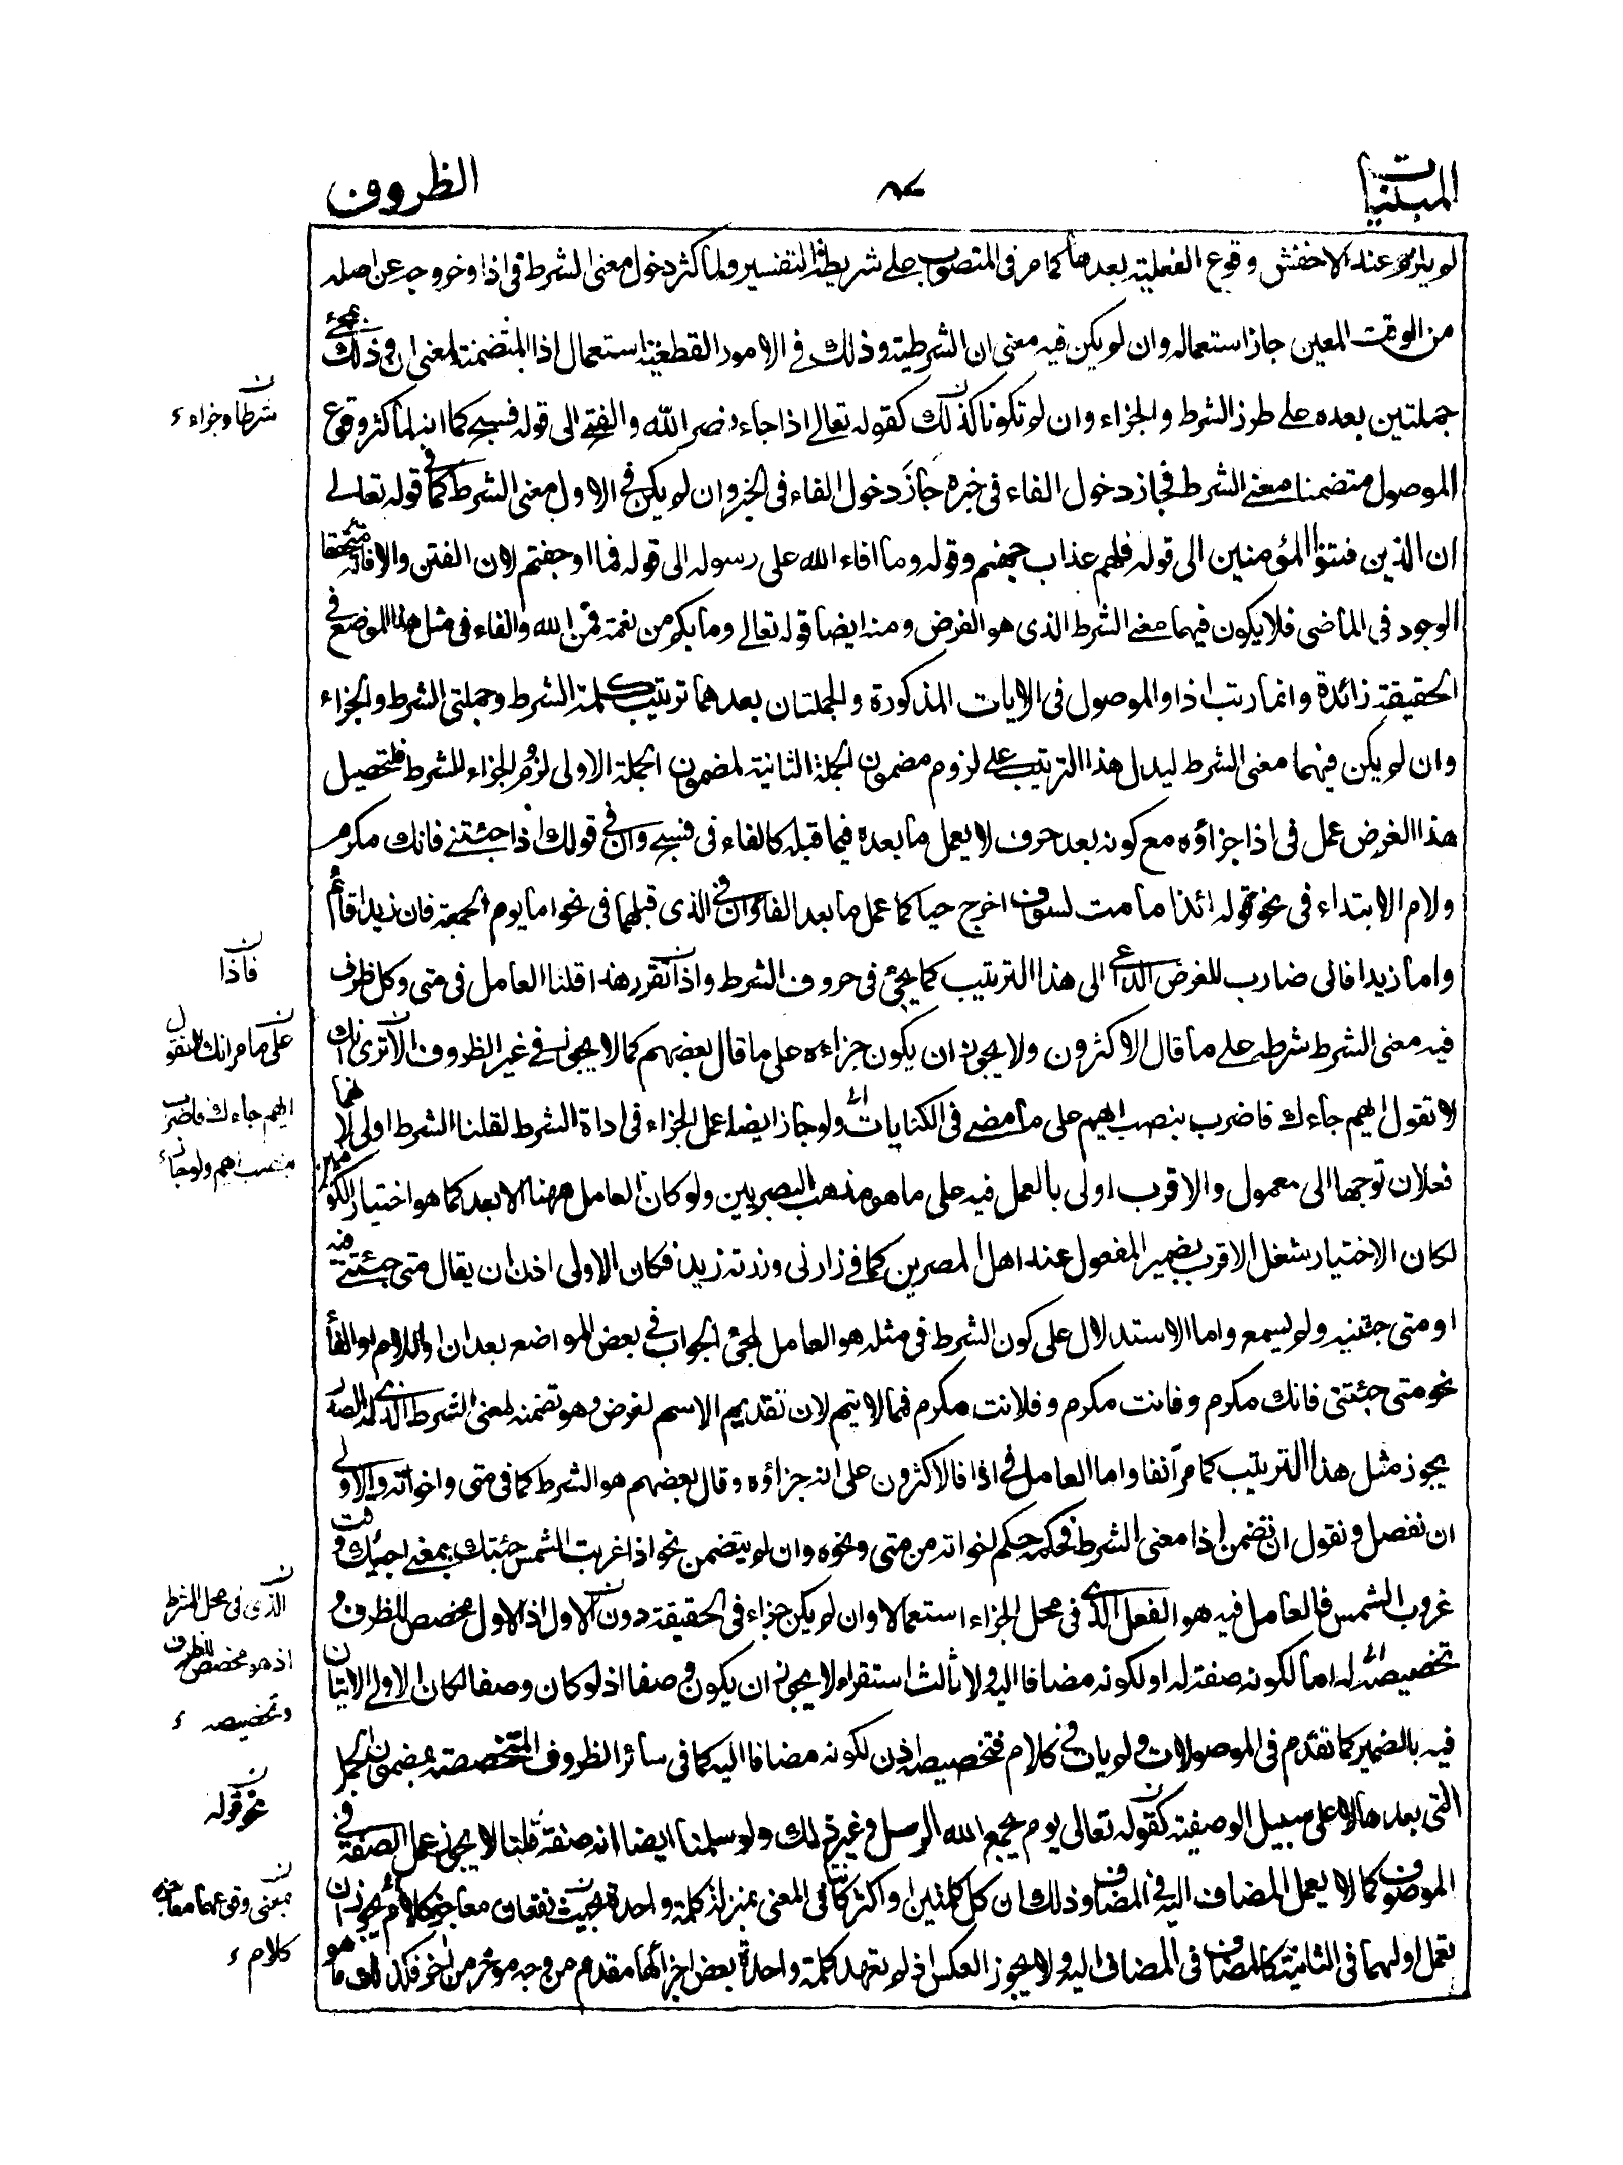 المبنيات
٨٤
الظروف
لم يلزم عند الاخفش وقوع الفعلية بعدها كما مر فى المنصوب على شريطة التفسير ولما كثر دخول معنى الشرط فى اذا وخروجه عن اصله
من الوقت المعين جاز استعماله وان لم يكن فيه معنى ان الشرطية وذلك فى الامور القطعية استعمال اذا المتضمنة لمعنى ان وذلك بمجئ
جملتين بعده على طرز الشرط والجزاء وان لم تكونا كذلك كقوله تعالى اذا جاء نصر الله والفتح الى قوله فسبح كما انه لما كثر وقوع
الموصول متضمنا معنى الشرط فجاز دخول الفاء فى خبره جاز دخول الفاء فى الخبر وان لم يكن فى الاول معنى الشرط كما فى قوله تعالى
ان الذين فتنوا المؤمنين الى قوله فلهم عذاب جهنم وقوله وما افاء الله على رسوله الى قوله فما اوجفتم لان الفتن والافاءة متحققا
الوجود فى الماضى فلا يكون فيهما معنى الشرط الذى هو الفرض ومنه ايضا قوله تعالى وما بكم من نعمة فمن الله والفاء فى مثل هذا الموضع فى
الحقيقة زائدة وانما رتب اذا والموصول فى الايات المذكورة والجملتان بعدهما ترتيب كلمة الشرط وجملتى الشرط والجزاء
وان لم يكن فيهما معنى الشرط ليدل هذا الترتيب على لزوم مضمون الجملة الثانية لمضمون الجملة الاولى لزوم الجزاء للشرط فلتحصيل
هذا الغرض عمل فى اذا جزاؤه مع كونه بعد حرف لا يعمل ما بعده فيما قبله كالفاء فى فسبح وان فى قولك اذا جئتنى فانك مكرم
ولام الابتداء فى نحو قوله ائذا ما مت لسوف اخرج حيا كما عمل ما بعد الفاء وان فى الذى قبلهما فى نحو اما يوم الجمعة فان زيدا قائم
واما زيدا فانى ضارب للغرض الداعى الى هذا الترتيب كما يجئ فى حروف الشرط واذا تقرر هذا قلنا العامل فى متى وكل ظرف
فيه معنى الشرط شرطه على ما قال الاكثرون ولا يجوز ان يكون جزاءه على ما قال بعضهم كما لا يجوز فى غير الظروف الا ترى انك
لا تقول ايهم جاءك فاضرب بنصب ايهم على ما مضى فى الكنايات ولو جاز ايضا عمل الجزاء فى اداة الشرط لقلنا الشرط اولى لانهما
فعلان توجها الى معمول والاقرب اولى بالعمل فيه على ما هو مذهب البصريين ولو كان العامل ههنا الابعد كما هو اختيار الكوفيين
لكان الاختيار شغل الاقرب بضمير المفعول عند اهل المصرين كما فى زارنى وزرته زيد فكان الاولى اذن ان يقال متى جئتنى فيه
او متى جئتنيه ولم يسمع واما الاستدلال على كون الشرط فى مثله هو العامل لمجئ الجواب فى بعض المواضع بعد ان واللام والفاء
نحو متى جئتنى فانك مكرم وفانت مكرم وفلانت مكرم فمما لا يتم لان تقديم الاسم لغرض وهو تضمنه لمعنى الشرط الذى له الصدر
يجوز مثل هذا الترتيب كما مر آنفا واما العامل فى اذا فالاكثرون على انه جزاؤه وقال بعضهم هو الشرط كما فى متى واخواته والاولى
ان نفصل ونقول ان تضمن اذا معنى الشرط فحكمه حكم اخواته من متى ونحوه وان لم يتضمن نحو اذا غربت الشمس جئتك بمعنى اجيئك وقت
غروب الشمس فالعامل فيه هو الفعل الذى فى محل الجزاء استعمالا وان لم يكن جزاء فى الحقيقة دون الاول اذ الاول مخصص للظرف و
تخصيصه له اما لكونه صفة له او لكونه مضافا اليه ولا ثالث استقراء ولا يجوز ان يكون وصفا اذ لو كان وصفا لكان الاولى الاتيان
فيه بالضمير كما تقدم فى الموصولات ولم يات فى كلام فتخصيصه اذن لكونه مضافا اليه كما فى سائر الظروف المتخصصة بمضمون الجمل
التى بعدها لا على سبيل الوصفية كقوله تعالى يوم يجمع الله الرسل وغير ذلك ولو سلمنا ايضا انه صفة قلنا لا يجوز عمل الصفة فى
الموصوف كما لا يعمل المضاف اليه فى المضاف وذلك ان كل كلمتين او اكثر كانتا فى المعنى بمنزلة كلمة واحدة بحيث تقعان معا جزء كلام يجوز ان
تعمل اولهما فى الثانية كالمضاف فى المضاف اليه ولا يجوز العكس اذ لم يعهد كلمة واحدة بعض اجزائها مقدم من وجه مؤخر من آخر فكذلك ما هو
شرطا وجزاء
فاذا
على ما مر انك لا تقول
ايهم جاءك فاضرب
بنصب ايهم ولو جاز
الذى فى محل الشرط
اذ هو مخصص للظرف
وتخصيصه
نحو قوله
بمعنى وقوعهما معا جزء
كلام